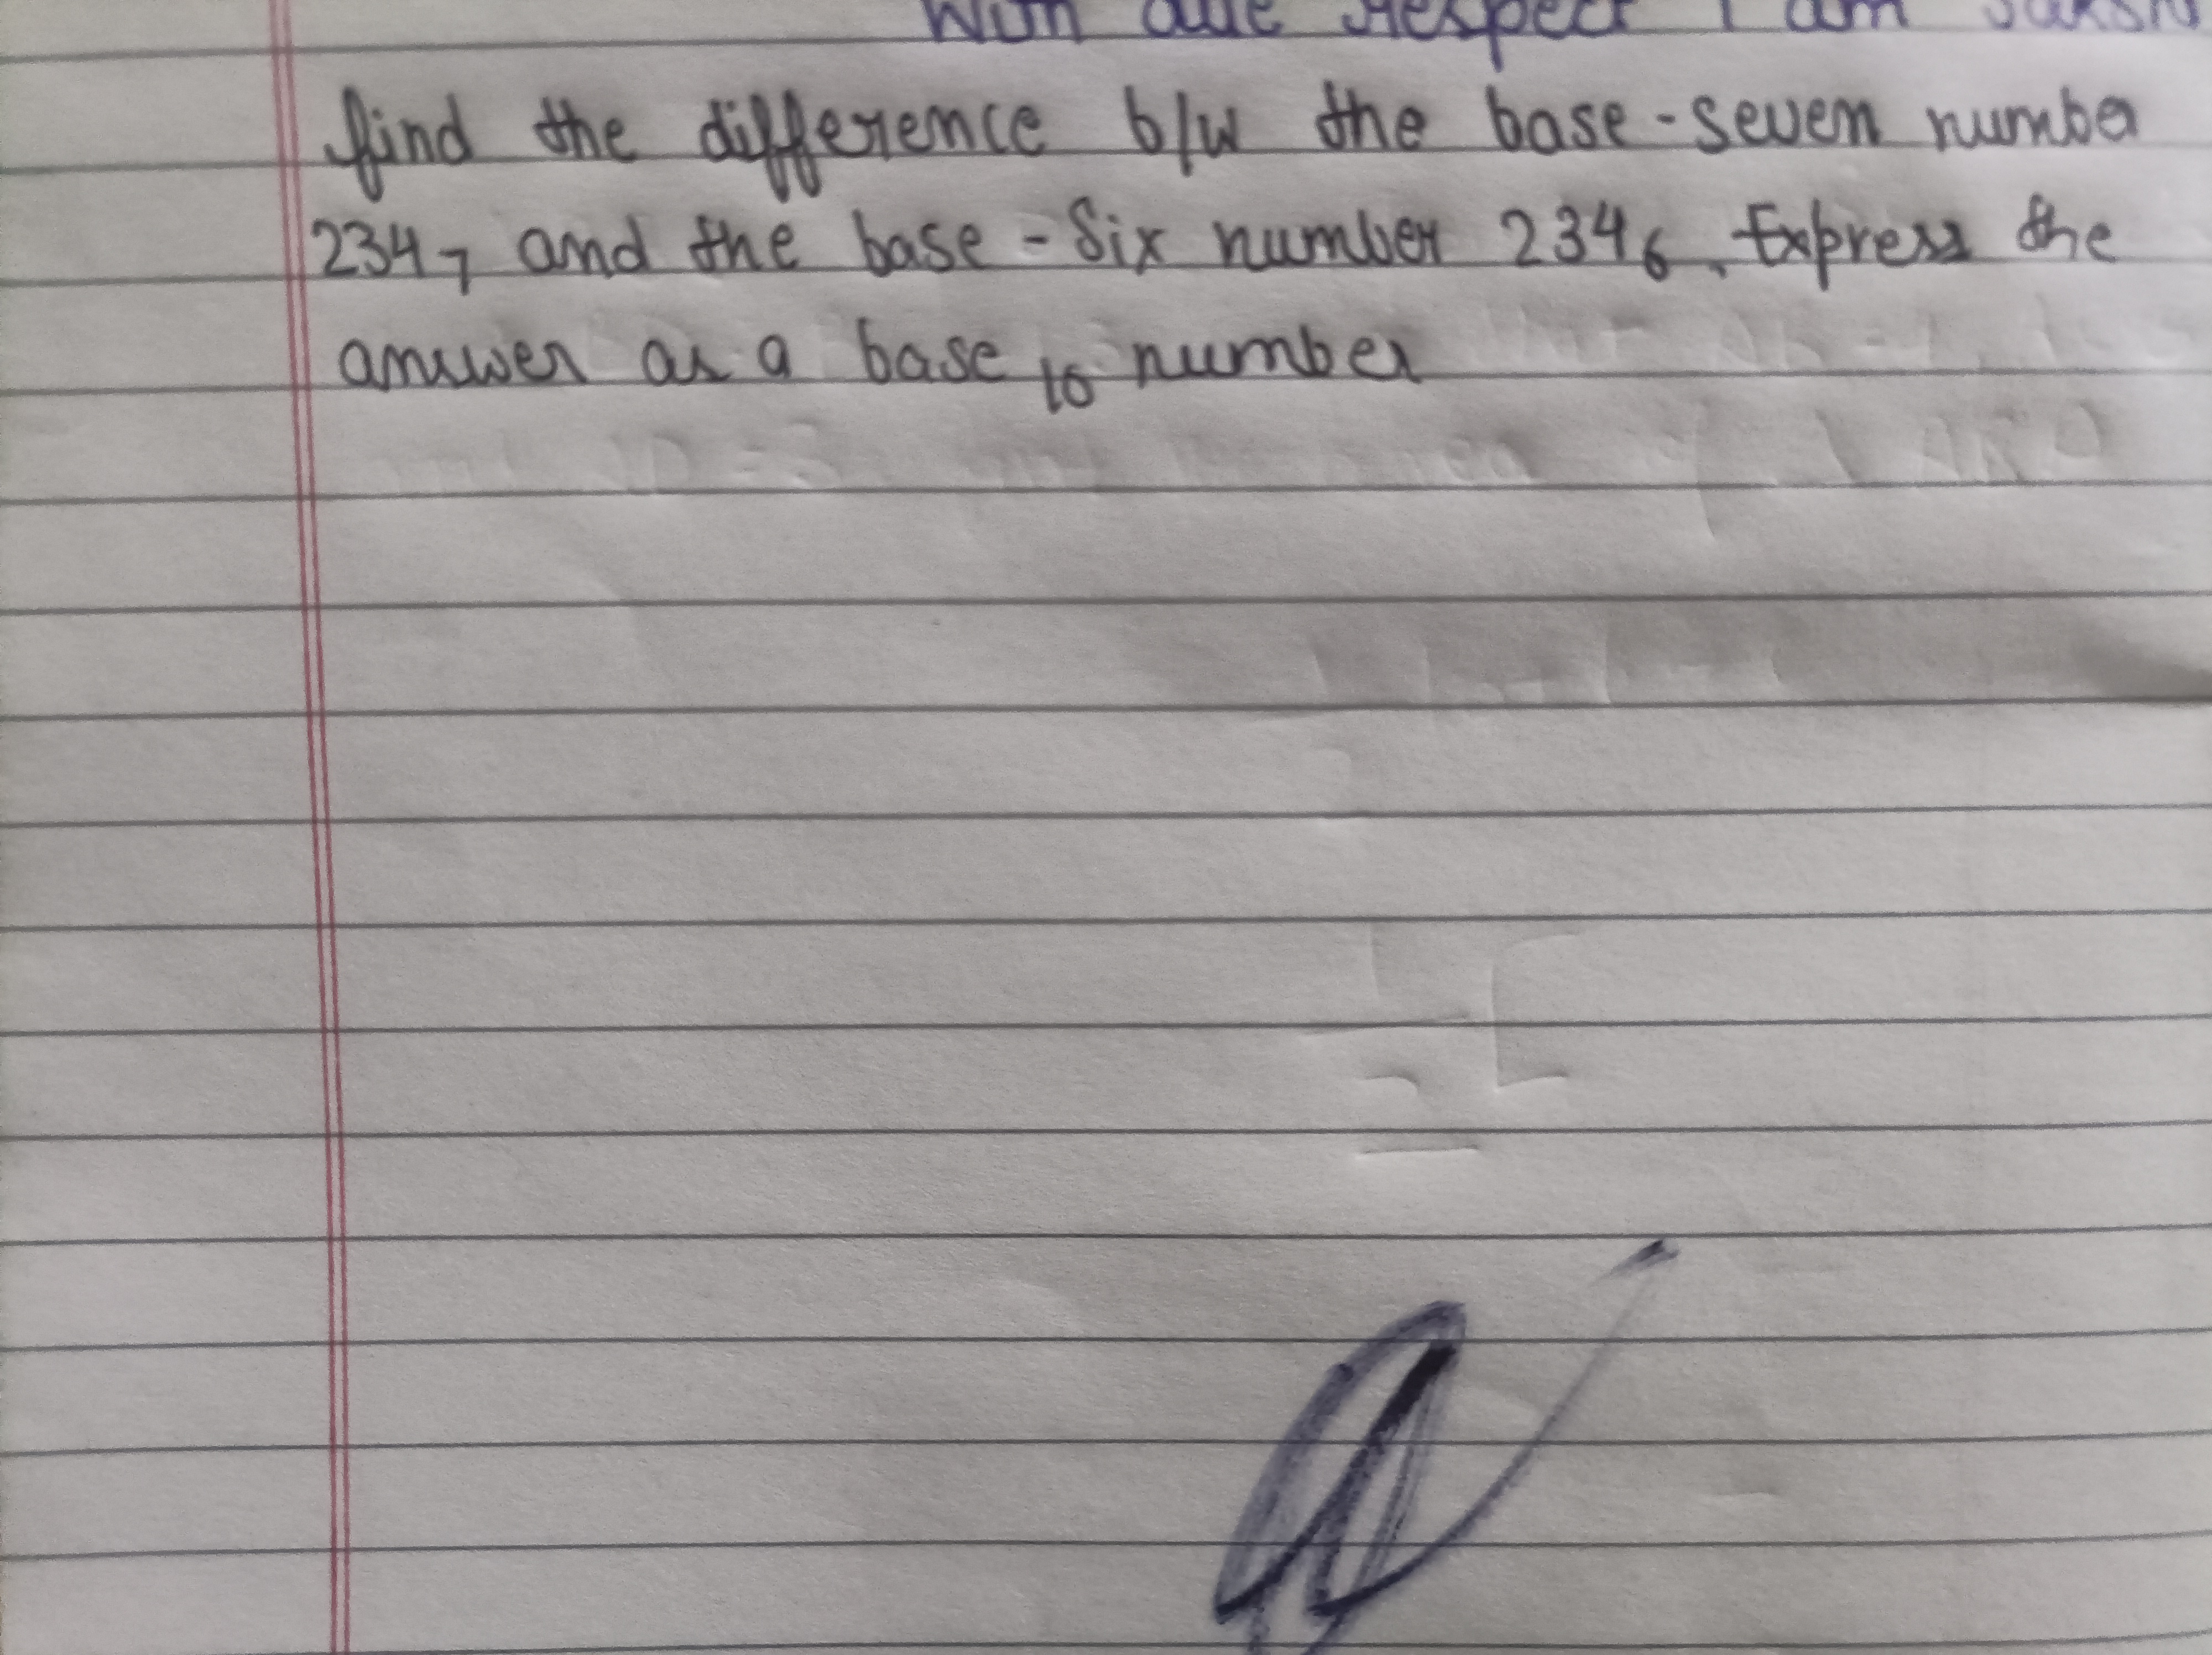 With due respect I am Sakshi
find the difference b/w the base-seven number
234₇ and the base-Six number 234₆. Express the
answer as a base 10 number